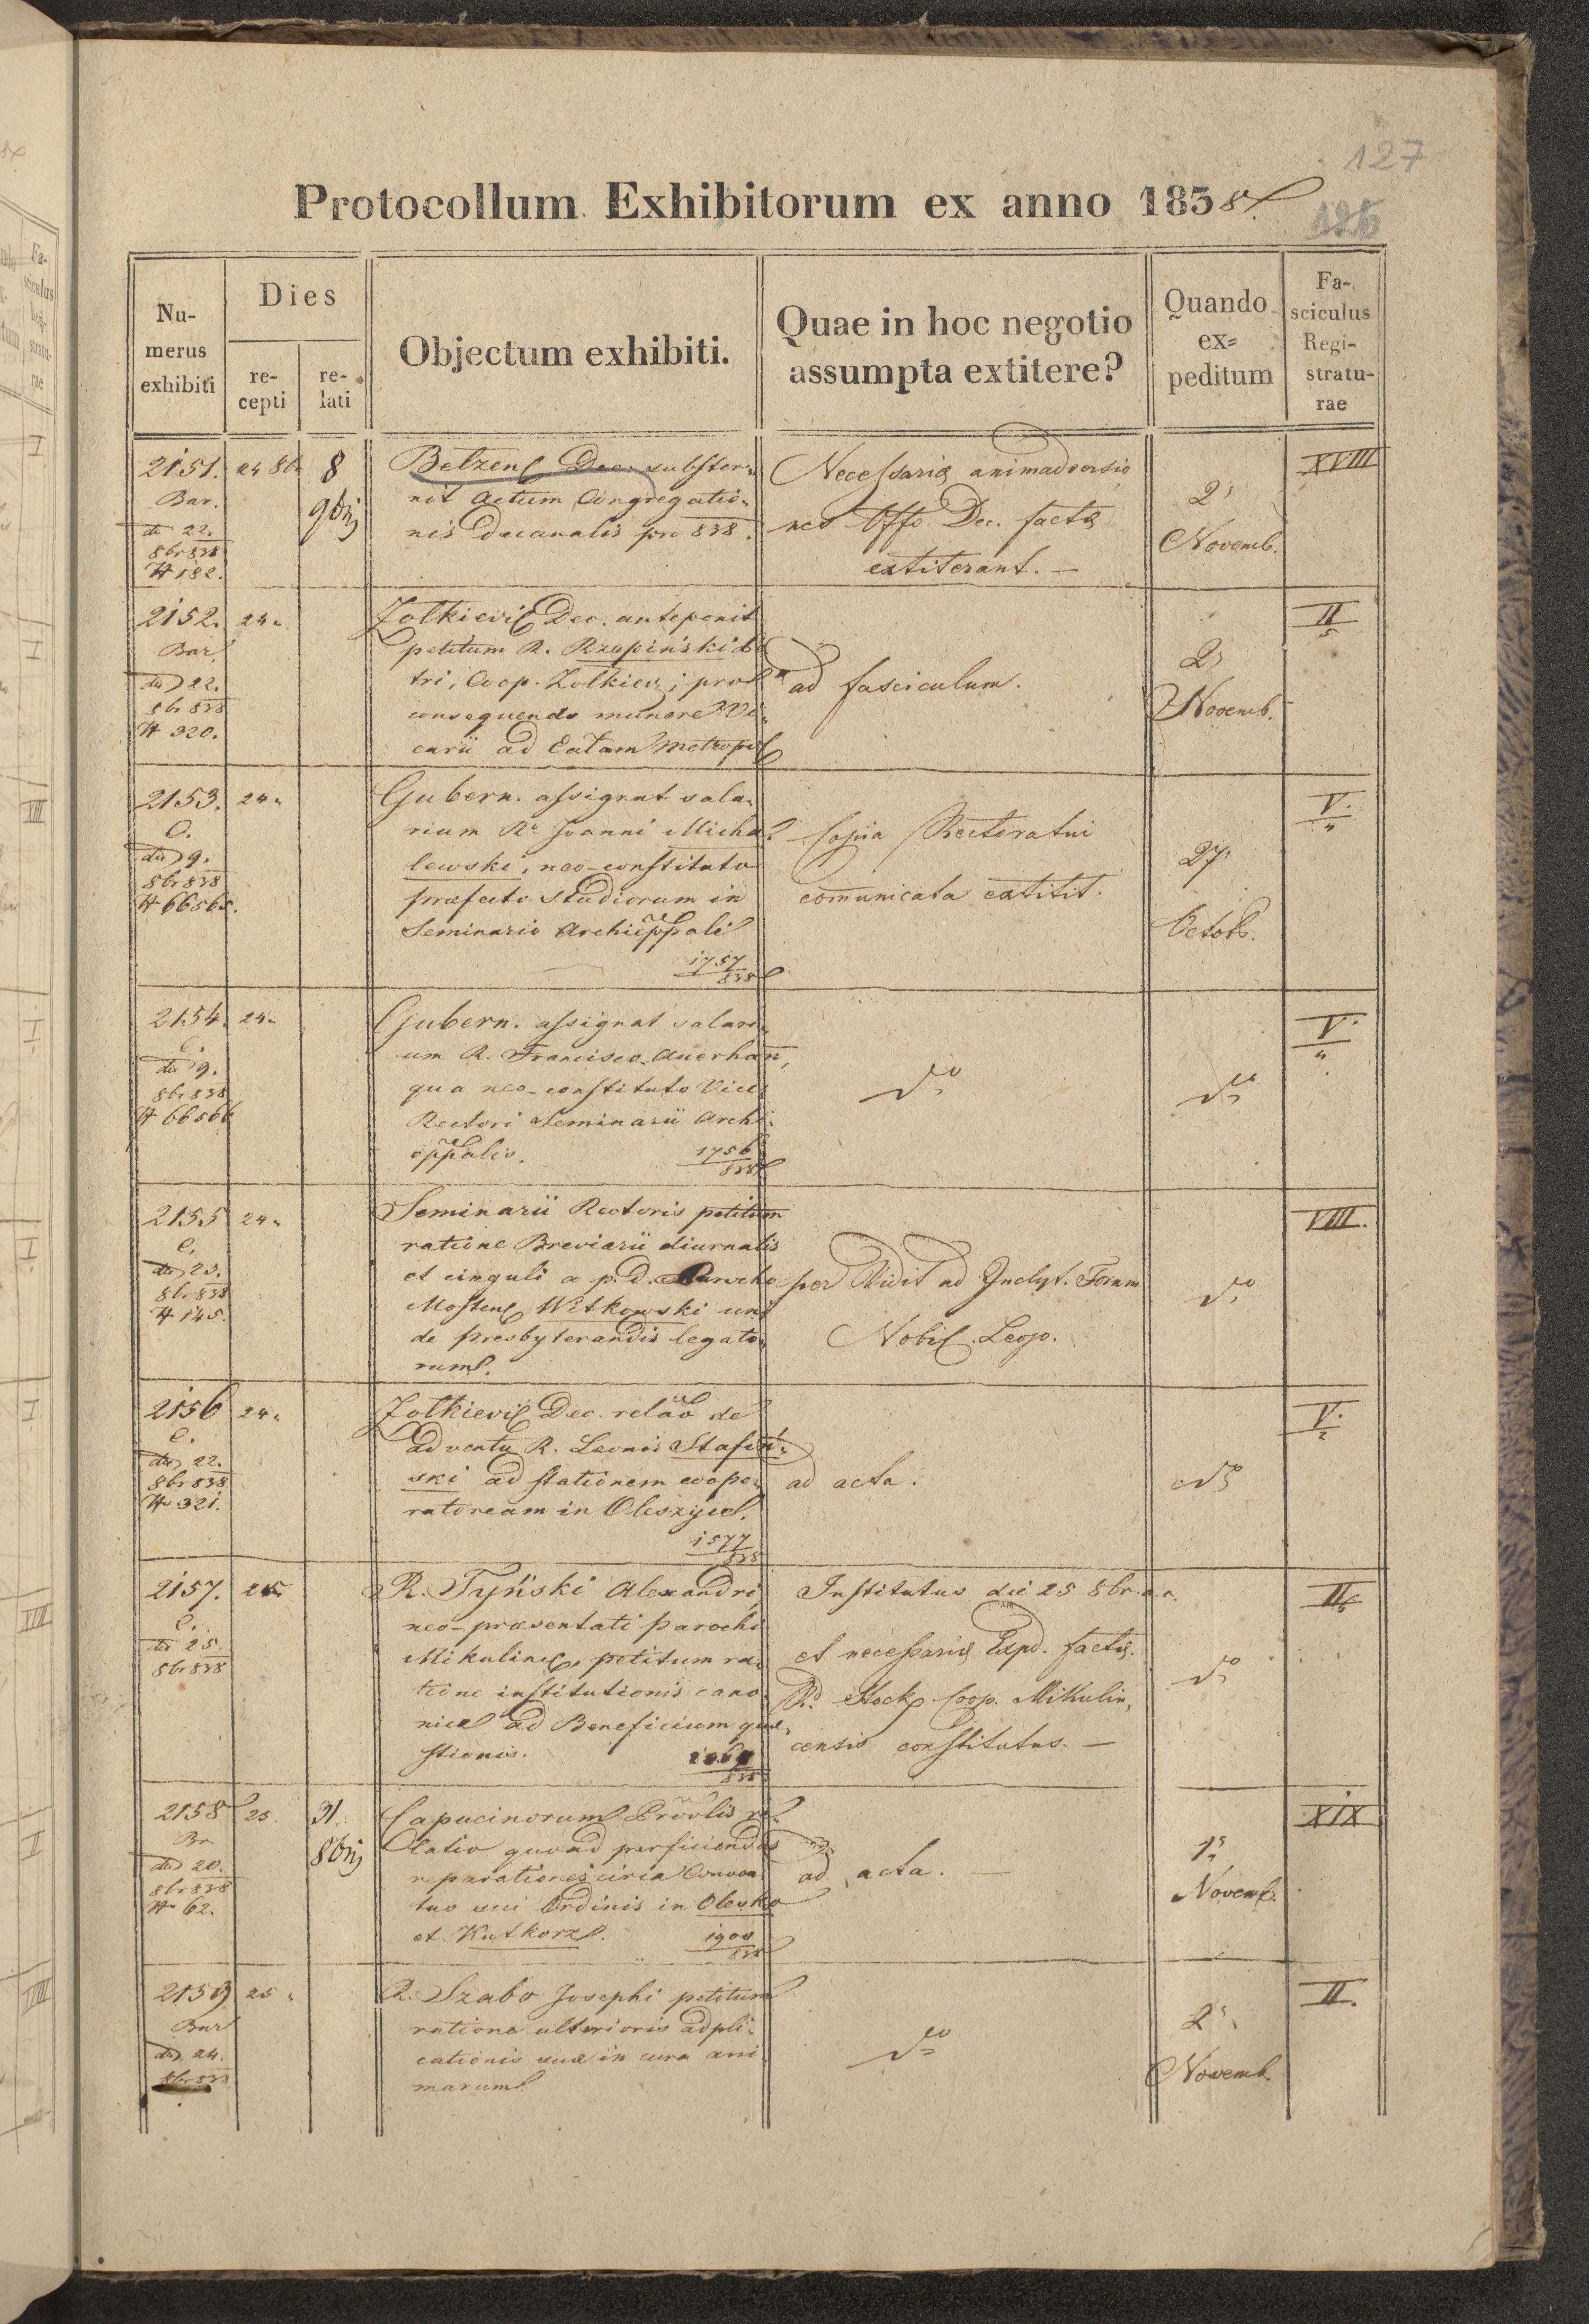 127
Protocollum Exhibitorum ex anno 1838.
126
Numerus exhibiti
Dies
re-
cepti
re-
lati
Objectum exhibiti.
Quae in hoc negotio
assumpta extitere?
Quando
ex=
peditum
Fa-
sciculus
Regi-
stratu-
rae
2151. 24 8br 8
Bar.
do 22.
8br 838
# 182.
9bris
Belzens Dec. subster-
nit actum Congregatio-
nis Decanalis pro 838.
Necessariae animadversio
nes Offo Dec. factae
extiterant. —
2
Novemb.
XVIII
2152. 24
Bar.
do 22.
8br 838
# 320.
Zolkievi Dec. anteponit
petitum R. Rzopiński
tri, Coop. Zolkiev; pro
consequendo munere Vi-
carii ad Eccl̄am Metropol
ad fasciculum.
2
Novemb.
II
5
2153. 24
C.
do 9.
8br 838
# 66565.
Gubern. assignat sala-
rium R. Joanni Micha-
lewski, neo-constituto
praefecto studiorum in
Seminario Archieppali
1757
838
Copia Rectoratui
com̄unicata extitit.
27
Octob.
V.
4
2154. 24
C.
do 9.
8br 838
# 66566
Gubern. assignat salari-
um R. Francisco Auerhan̄,
qua neo-constituto Vice-
Rectori Seminarii Archi-
eppalis.
1756
838
do
do
V.
4
2155 24
C.
do 23.
8br 838
# 145.
Seminarii Rectoris petitum
ratione Breviarii diurnalis
et cinguli a p. d. Parocho
Mosten Witkowski uni
de presbyterandis legato-
rum.
per Vidit ad Inclyt. Forum
Nobil. Leop.
do
VIII.
2156 24
C.
do 22.
8br 838
# 321.
Zolkievi Dec. relaō de
adventu R. Leonis Stafiń-
ski ad stationem coope-
ratoream in Oleszyce.
1577
838
ad acta.
do
V.
2
2157. 25
C.
do 25.
8br 838
R. Tyński Alexandri,
neo-praesentati parochi
Mikulince, petitum ra-
tione institutionis cano-
nicae ad Beneficium quae-
stionis.
838
Institutus die 25 8br. a. c.
et necessariae Expd. factae.
R. Stock Coop. Mikulin-
censis constitutus. —
do
II
5
2158 25 31.
Br
do 20.
8br 838
# 62.
8bris
Capucinorum Provlis re-
latio quoad perficiendas
reparationes circa Conven-
tus sui Ordinis in Olesko
et Kutkorz.
1900
838
ad acta. —
1
Novemb.
XIX
2159 25
Bar
do 24.
8br 838
R. Szabo Josephi petitum
ratione ulterioris adpli-
cationis suae in cura ani-
marum.
do
2
Novemb.
II.